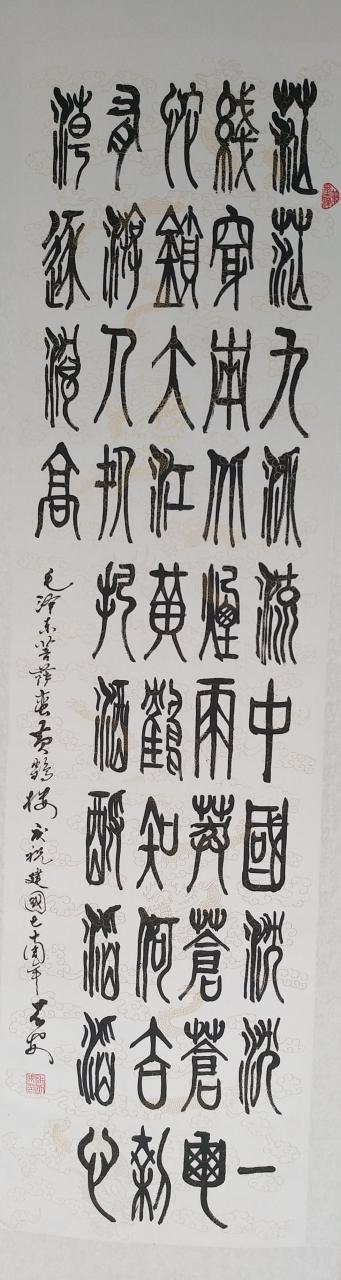 茫茫九派流中國沈沈一
線穿南北煙雨莽蒼蒼龜
蛇鎖大江黃鶴知何去剩
有游人処把酒酹滔滔心
潮逐浪高
毛泽东菩薩蛮黄鹤楼祝建國七十周年